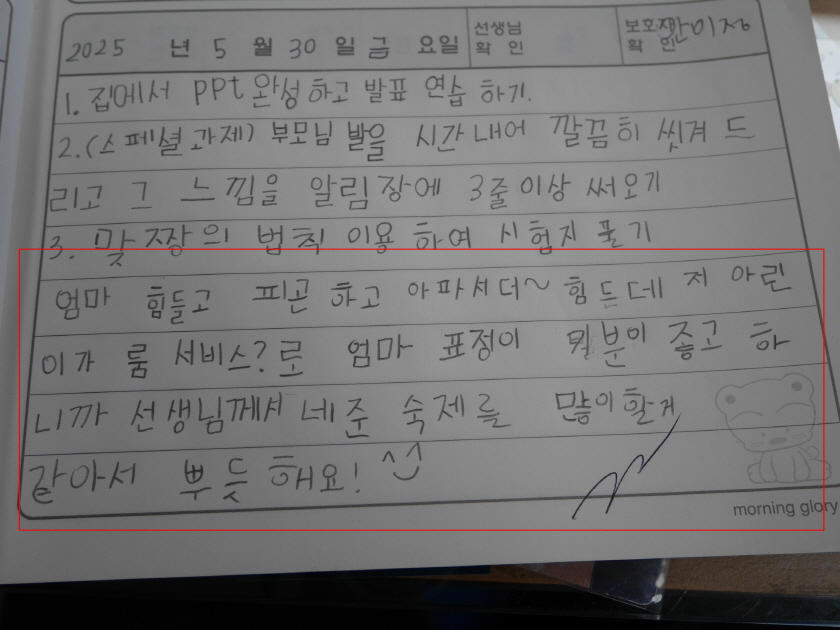 2025 년 5 월 30 일 금 요일 선생님 확 인 보호자 확 인 한미정
1. 집에서 PPt 완성 하고 발표 연습 하기.
2. (스페셜 과제) 부모님 발을 시간내어 깔끔히 씻겨 드
리고 그 느낌을 알림장에 3줄이상 써오기
3. 맞짱의 법칙 이용 하여 시험지 풀기
엄마 힘들고 피곤 하고 아파셔더~ 힘든데 저 아린
이가 룸 서비스?로 엄마 표정이 기분이 좋고 하
니까 선생님께서 네준 숙제를 많이할게
같아서 뿌듯 해요! ^^
morning glory